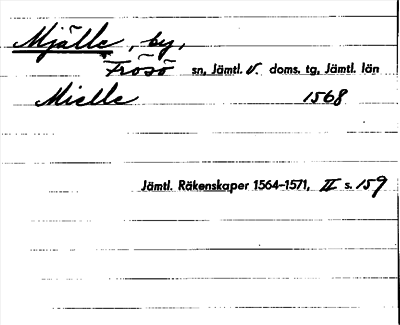 Mjälle, by,
Frösö sn, Jämtl. V. doms. tg, Jämtl. län
Mielle 1568
Jämtl. Räkenskaper 1564-1571, II s. 159